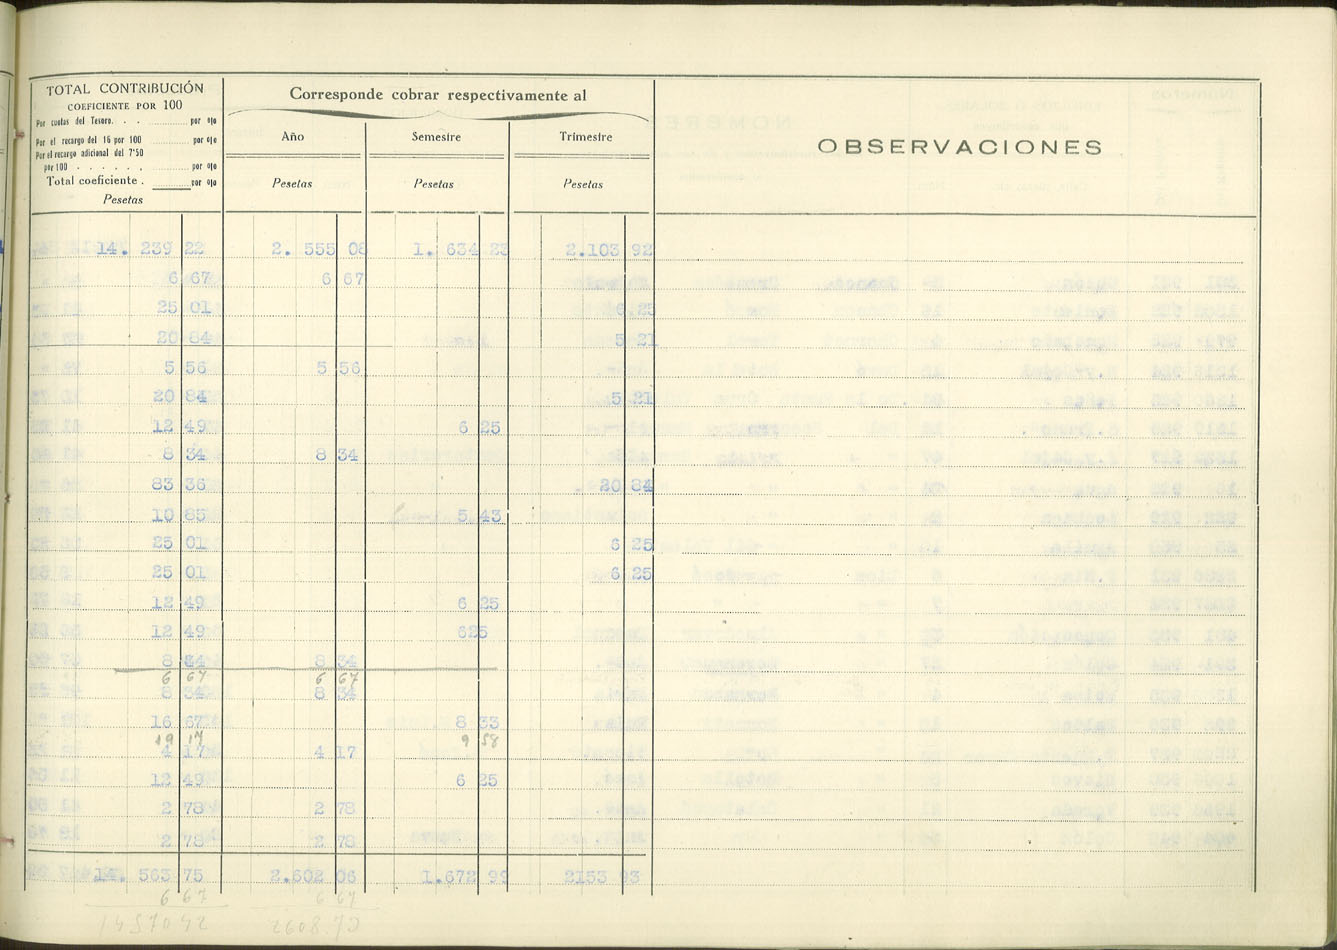 TOTAL CONTRIBUCIÓN
COEFICIENTE POR 100
Por cuotas del Tesoro. . . por o|o
Por el recargo del 16 por 100 por o|o
Por el recargo adicional del 7'50
por 100 . . . . . . por o|o
Total coeficiente . por o|o
Pesetas
Corresponde cobrar respectivamente al
Año Semestre Trimestre
Pesetas Pesetas Pesetas
OBSERVACIONES
14. 239 22 2. 555 08 1. 634 23 2.103 92
6 67 6 67
25 01 6 25
20 84 5 21
5 56 5 56
20 84 5 21
12 49 6 25
8 34 8 34
83 36 20 84
10 85 5 43
25 01 6 25
25 01 6 25
12 49 6 25
12 49 625
8 34 8 34
6 67 6 67
8 34 8 34
16 67 8 33
19 17 9 58
4 17 4 17
12 49 6 25
2 78 2 78
2 78 2 78
14. 563 75 2.602 06 1.672 99 2153 93
6 67 6 67
14570 42 2608 73